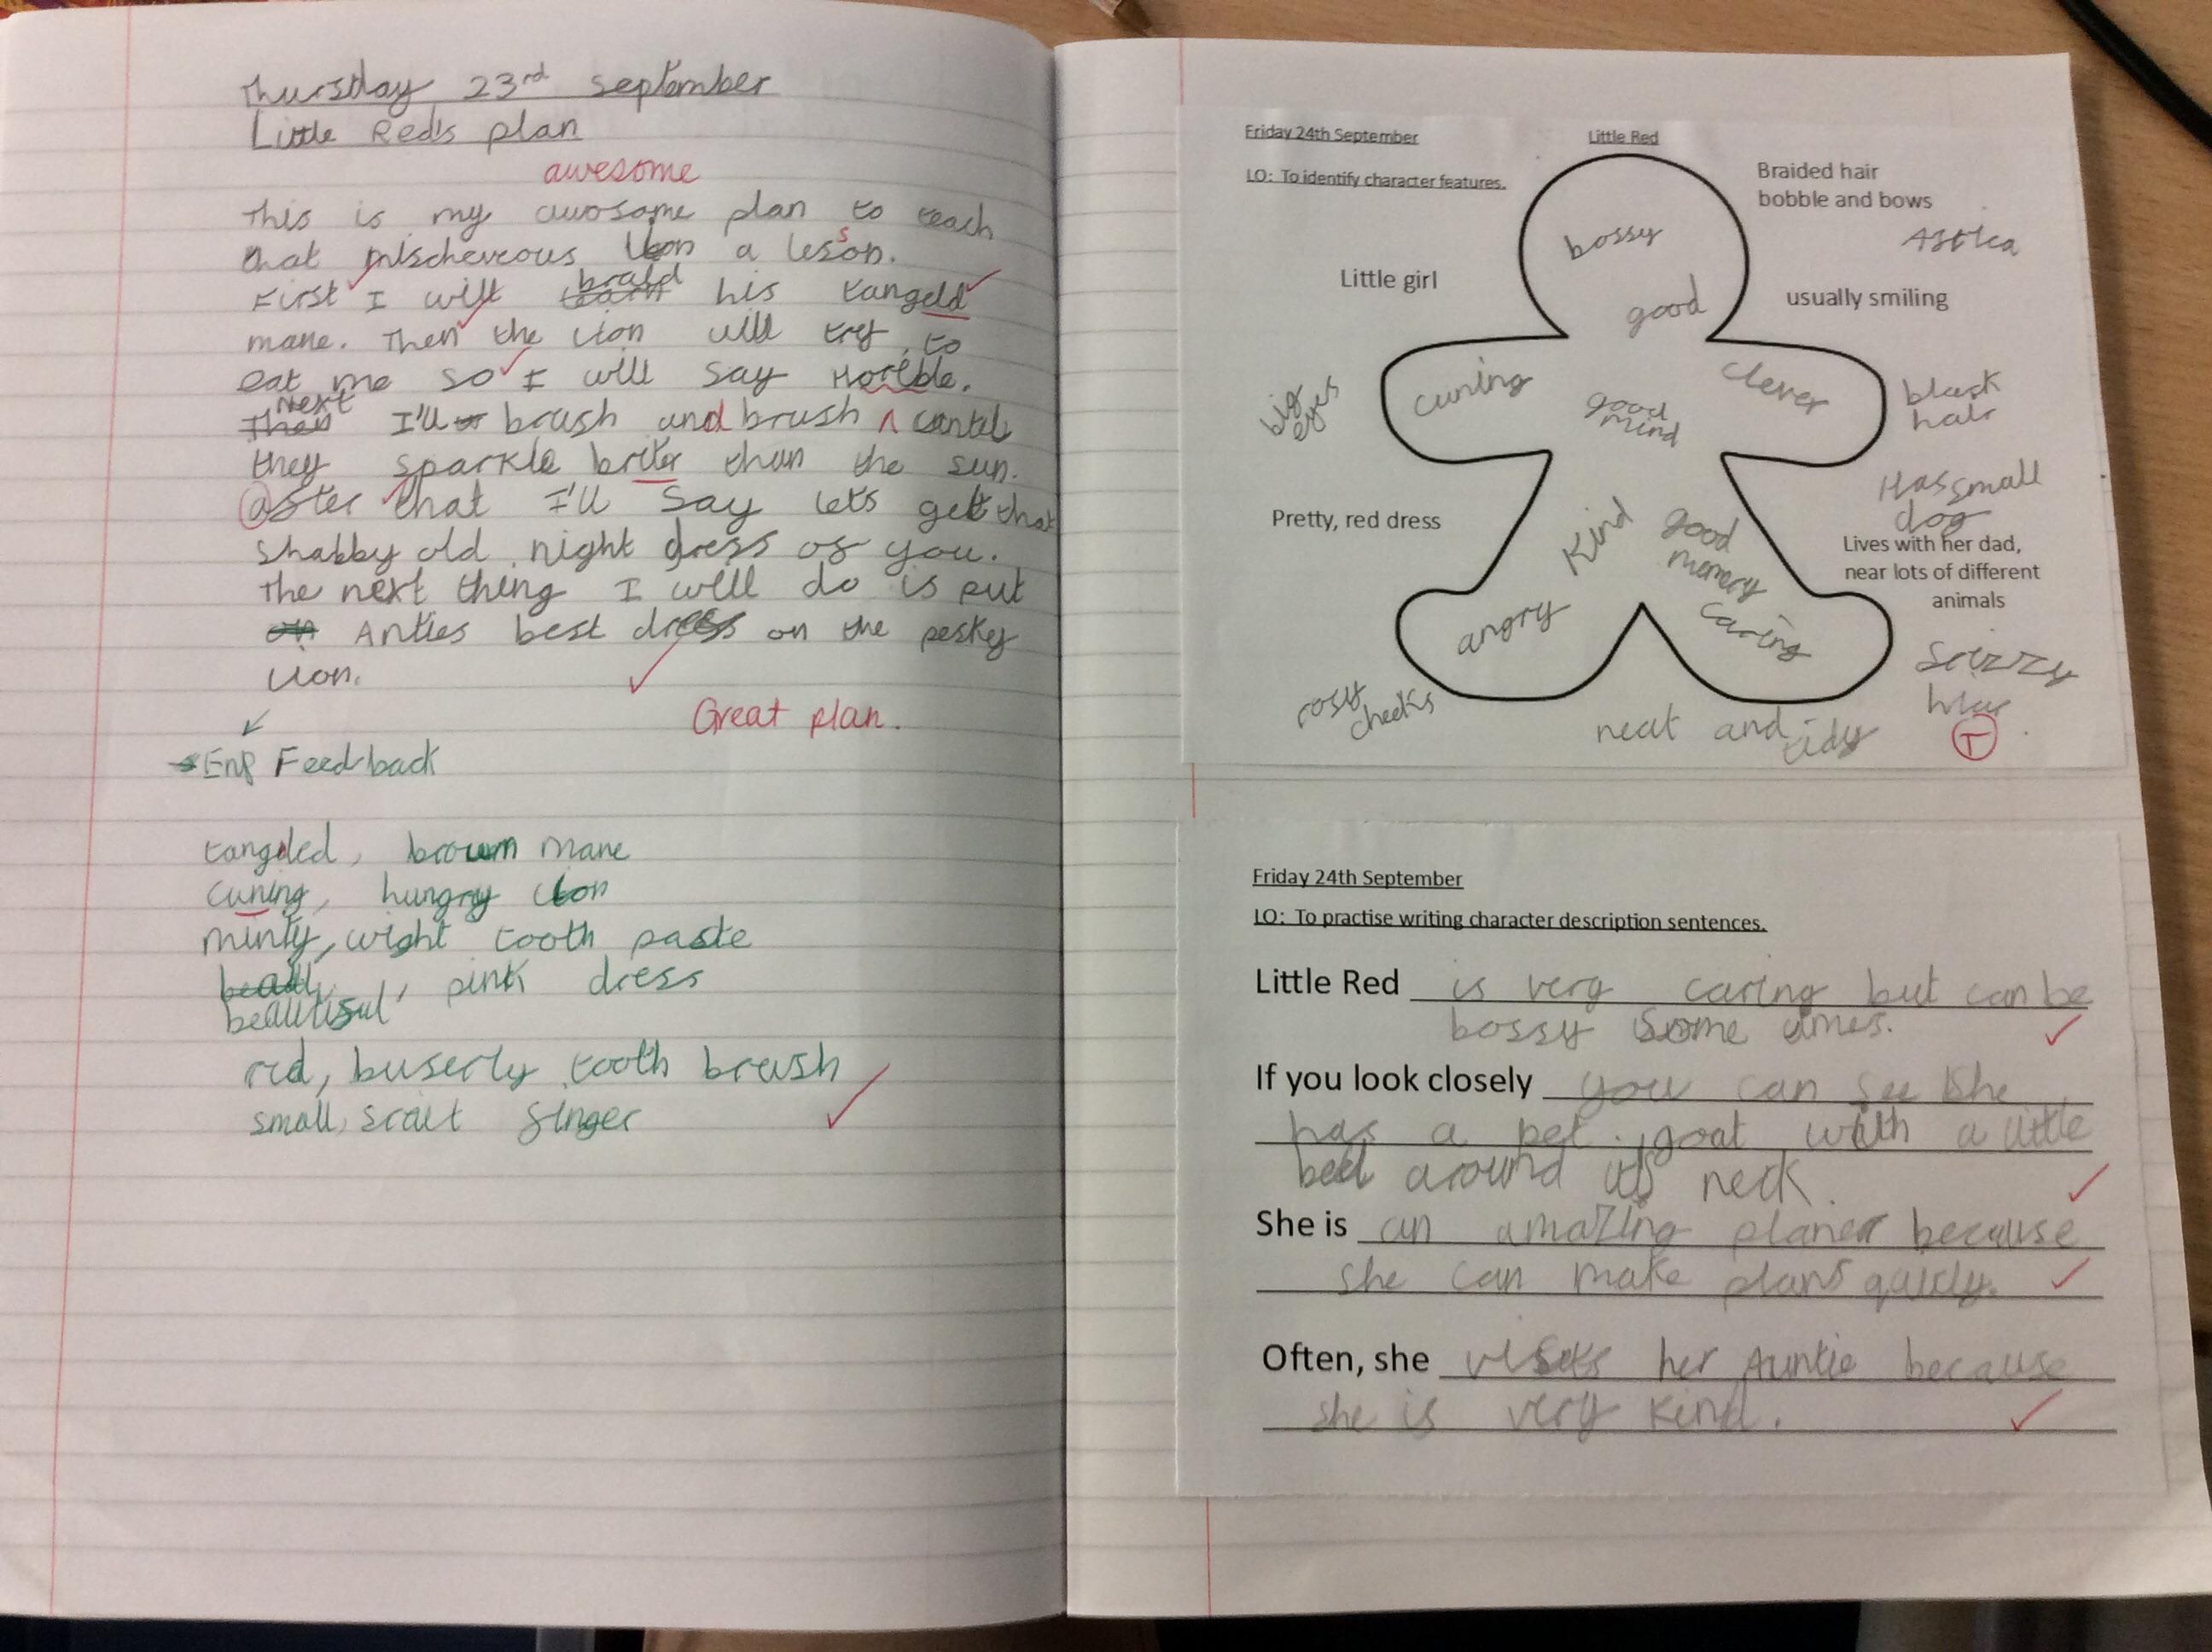 Thursday 23rd September
Little Red's plan
awesome
This is my awosome plan to teach
that mischeveous lion a lesson.
First I will braid his tangeld
mane. Then the lion will try to
eat me so I will say Horible.
Next I'll brush and brush
they sparkle briter than the sun.
after that I'll say lets get that
shabby old night dress of you.
The next thing I will do is put
Anties best dress on the pesky
lion.
Great plan.
Feedback
tangled, brown mane
cuning, hungry lion
minty, wight tooth paste
beautiful, pink dress
red, buterfly tooth brush
small, finger
Friday 24th September
Little Red
LO: To identify character features.
Braided hair
bobble and bows
Little girl
usually smiling
bossy
good
cuning
good
mind
clever
big
eyes
black
hair
Has small
dog
Pretty, red dress
Lives with her dad,
near lots of different
animals
Kind
good
memery
angry
caring
rosy
cheeks
neat and tidy
T
Friday 24th September
LO: To practise writing character description sentences.
Little Red is very caring but can be
bossy some times.
If you look closely you can see she
has a pet goat with a little
bell around its neck.
She is an amazing planer because
she can make plans quicly.
Often, she visits her Auntie because
she is very kind.